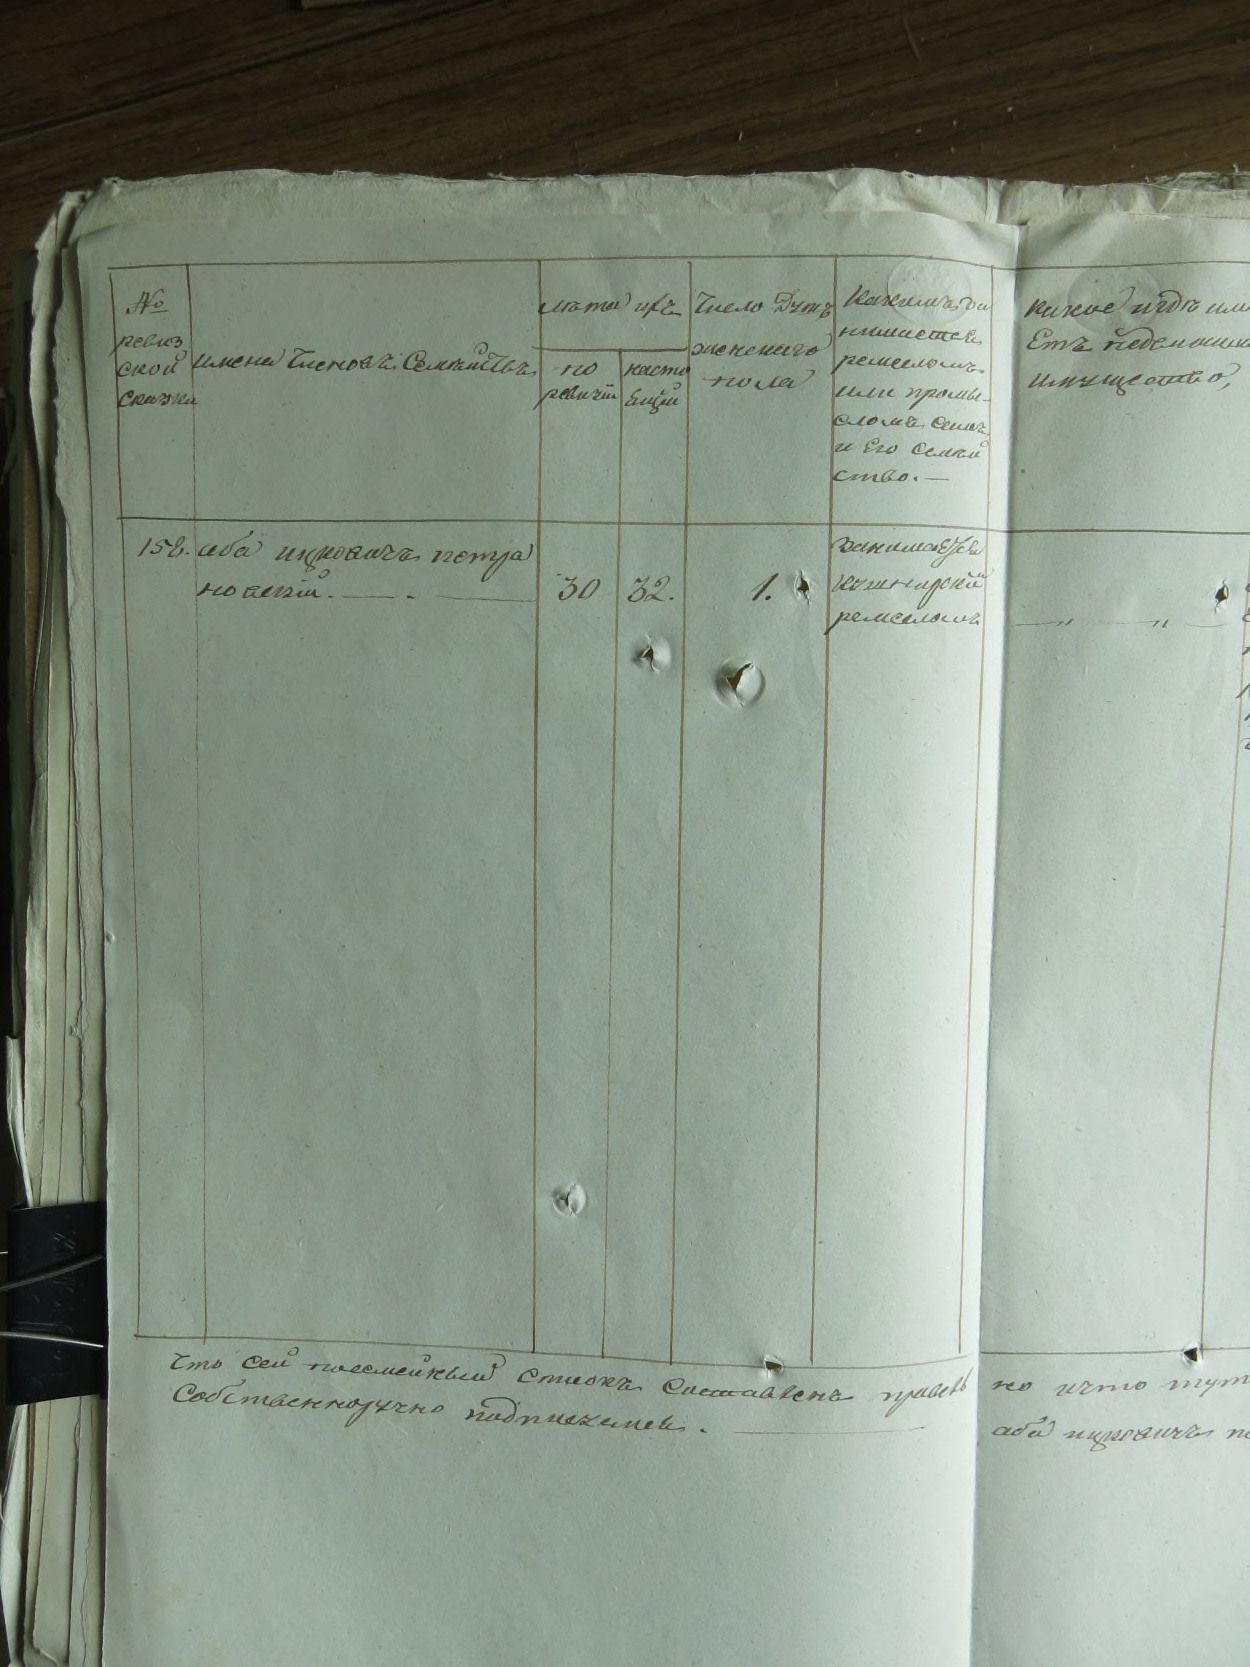 №
ревиз
ской
сказки
имена Членовъ Семѣйствъ
лѣта ихъ
по
ревизіи
насто
ещіи
Число Душъ
женскаго
пола
Какимъ за
нимается
ремесломъ
или промы-
сломъ самъ
и Его Семѣй
ство.—
какое игдѣ им
Етъ недвижим
имущество,
158. аба ицковичъ петра
новскій. — . —
30
32.
1.
Занимается
Кушнирскім
ремесломъ
— „ — „ —
Что сей посемейный Списокъ Составленъ правель но ичто тут
Собственноручно подписуемся. — аба ицковичъ пе